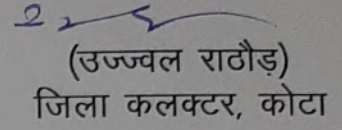 (उज्ज्वल राठौड़)
जिला कलक्टर, कोटा